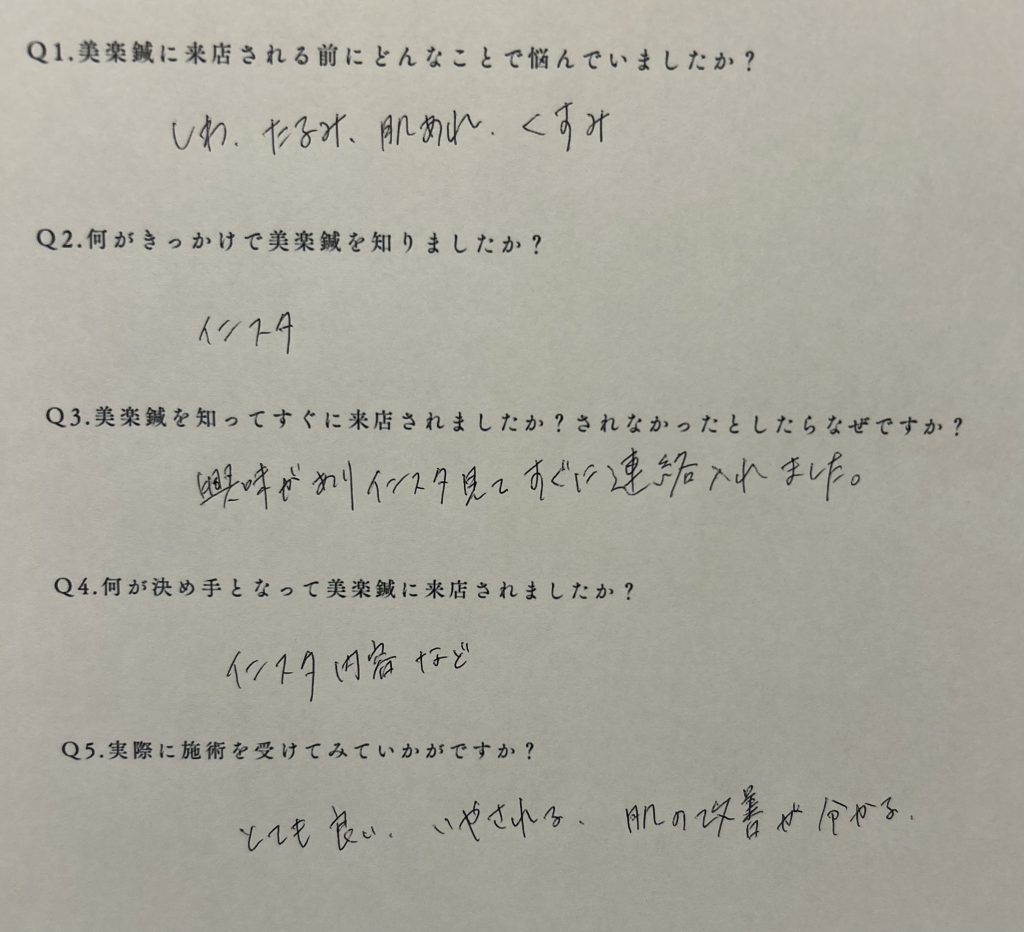 Q1.美楽鍼に来店される前にどんなことで悩んでいましたか？
しわ、たるみ、肌あれ、くすみ
Q2.何がきっかけで美楽鍼を知りましたか？
インスタ
Q3.美楽鍼を知ってすぐに来店されましたか？されなかったとしたらなぜですか？
興味がありインスタ見てすぐに連絡入れました。
Q4.何が決め手となって美楽鍼に来店されましたか？
インスタ内容など
Q5.実際に施術を受けてみていかがですか？
とても良い、いやされる、肌の改善が分かる.